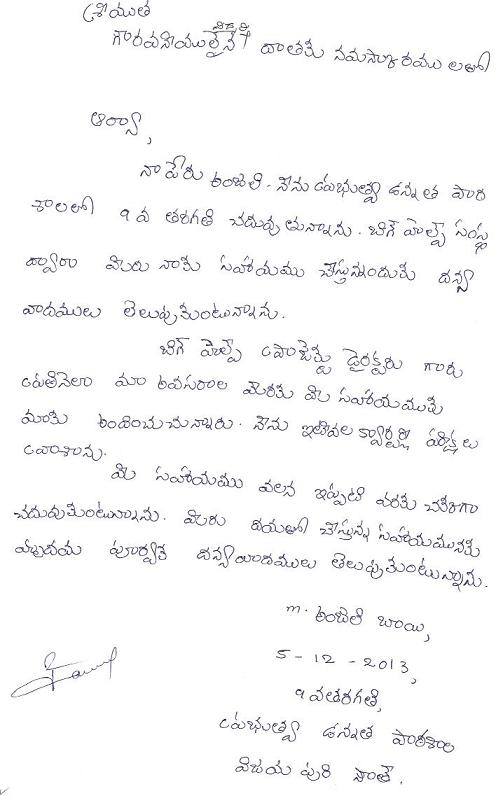 శ్రీయుత
గౌరవనీయులైన విద్యార్థి దాతకు నమస్కారములతో
ఆర్యా,
నా పేరు అంజలి. నేను ప్రభుత్వ ఉన్నత పాఠ
శాలలో 9 వ తరగతి చదువుతున్నాను. బిగ్ హెల్ప్ సంస్థ
ద్వారా మీరు నాకు సహాయము చేస్తున్నందుకు ధన్య
వాదములు తెలుపుకుంటున్నాను.
బిగ్ హెల్ప్ ప్రాజెక్టు డైరెక్టరు గారు
ప్రతినెలా మా అవసరాల మేరకు మీ సహాయమును
మాకు అందించుచున్నారు. నేను ఇటీవల క్వార్టర్లీ పరీక్షలు
వ్రాశాను.
మీ సహాయము వలన ఇప్పటి వరకు చక్కగా
చదువుకుంటున్నాను. మీరు దయతో చేస్తున్న సహాయమునకు
హృదయ పూర్వక ధన్యవాదములు తెలుపుకుంటున్నాను.
m. అంజలి బాయి,
5-12-2013,
9 వతరగతి,
ప్రభుత్వ ఉన్నత పాఠశాల
విజయ పురి సౌత్.